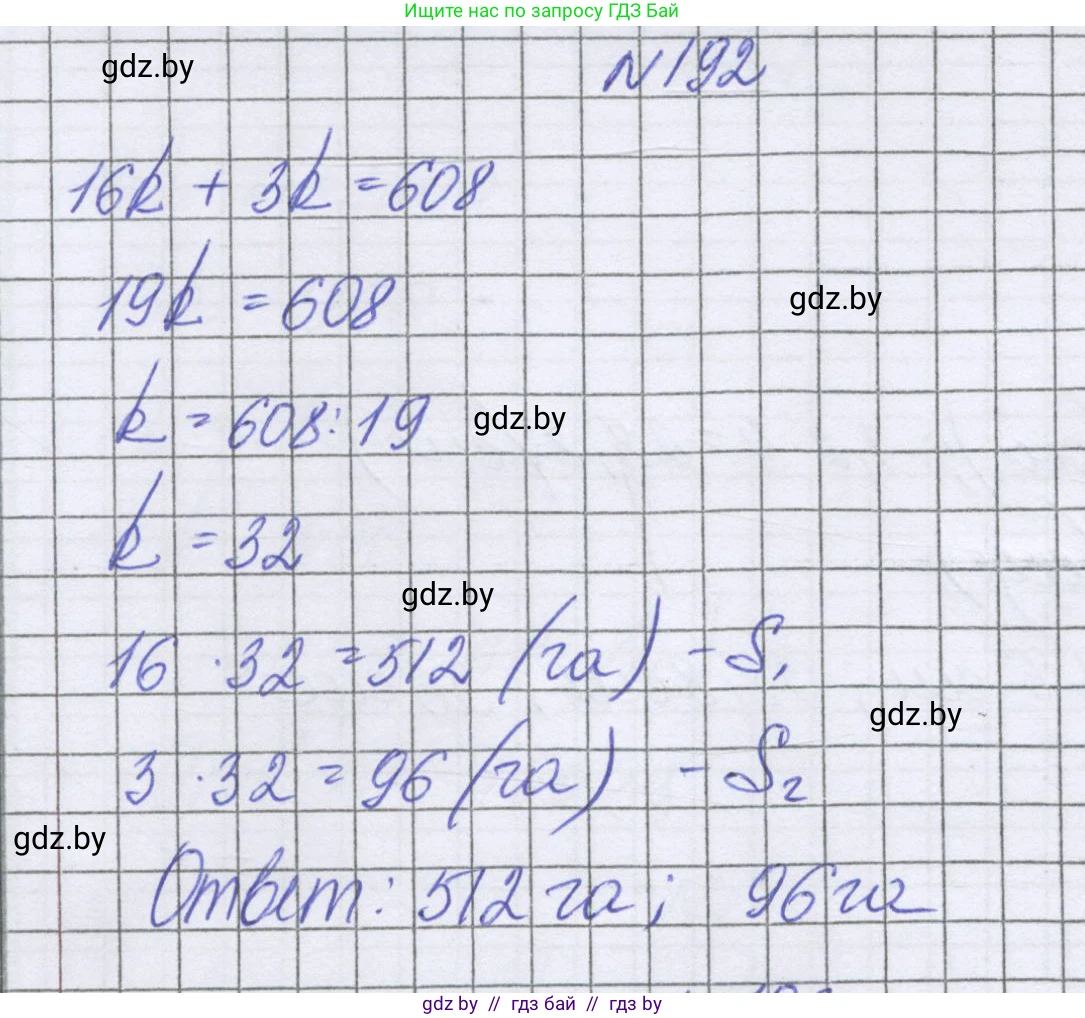 Ищите нас по запросу ГДЗ Бай
gdz.by
N192
16k + 3k = 608
19k = 608
gdz.by
k = 608 : 19
gdz.by
k = 32
gdz.by
16 · 32 = 512 (га) - S₁
gdz.by
3 · 32 = 96 (га) - S₂
gdz.by
Ответ: 512 га; 96 га
gdz.by // гдз бай // гдз by